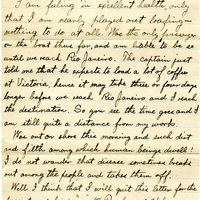 I am feeling in excellent health, only
that I am nearly played out loafing—
nothing to do at all. Was the only passenger
on the boat thus far, and am liable to be so
until we reach Rio Janeiro. The Captain just
told me that he expects to load a lot of coffee
at Victoria, hence it may take three or four days
longer before we reach Rio Janeiro and I reach
the destination. So you see the time goes and I
am still quite a distance from my work.
Was out on shore this morning and such dirt
and filth among which human beings dwell!
I do not wonder that disease sometimes breaks
out among the people and takes them off.
Well I think that I will quit this letter for the